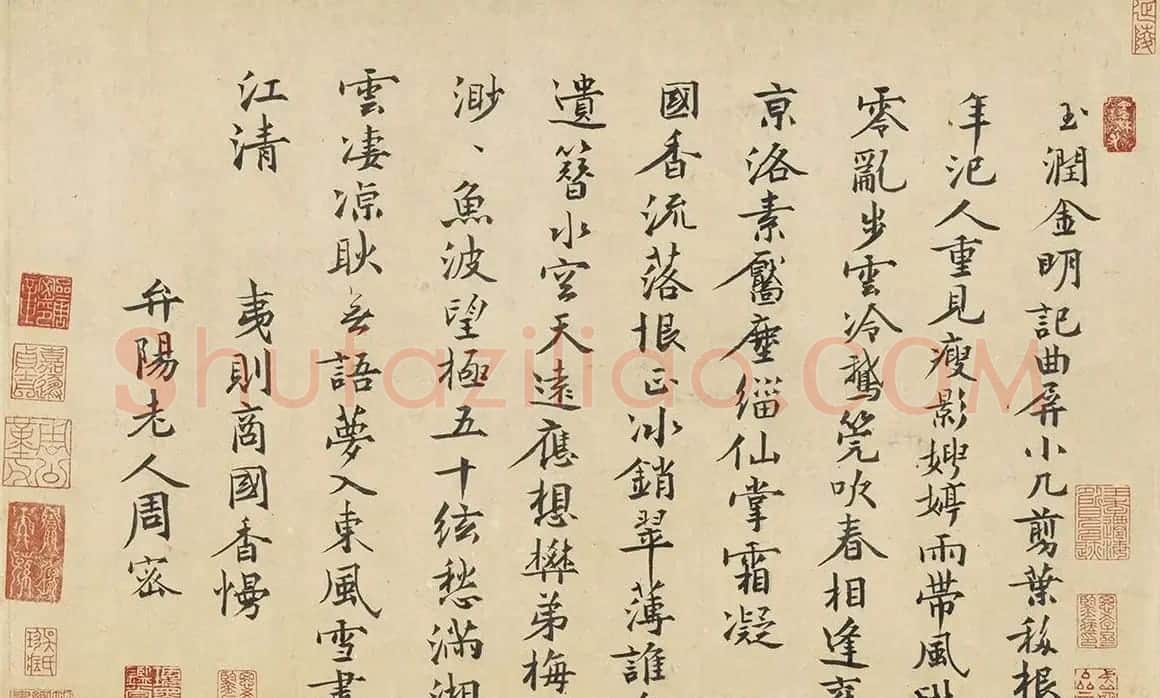 玉潤金明記曲屏小几剪葉移根
年汜人重見瘦影娉婷雨帶風
零亂步雲冷鵞筦吹春相逢
京洛素靨塵緇仙掌霜凝
國香流落恨正冰銷翠薄誰
遺簪水空天遠應想礬弟梅
渺、魚波望極五十絃愁滿湘
雲凄凉耿無語夢入東風雪盡
江清
夷則商國香慢
弁陽老人周密
延陵
Shufaziliao.COM